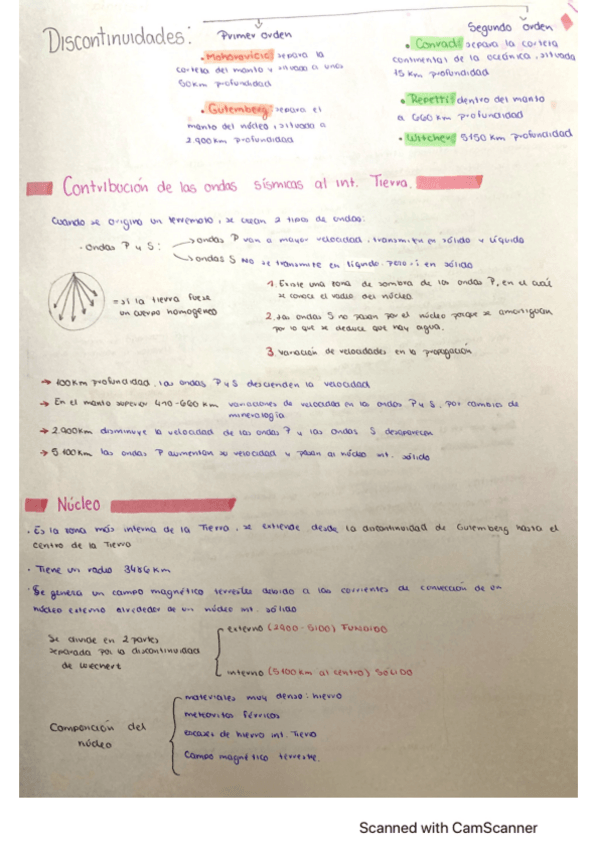 Discontinuidades:
Primer orden
• Mohorovicic: separa la
corteza del manto y situada a unos
50km profundidad
• Gutemberg: separa el
manto del núcleo, situada a
2.900 km profundidad
Segundo orden
• Conrad: separa la corteza
continental de la oceánica, situada
15 km profundidad
• Repetti: dentro del manto
a 660 km profundidad
• Witchert: 5150 km profundidad
Contribución de las ondas sísmicas al int. Tierra.
Cuando se origina un terremoto, se crean 2 tipos de ondas:
· Ondas P y S:
→ ondas P van a mayor velocidad, transmite en sólido y líquido
→ ondas S NO se transmite en líquido pero si en sólido
= si la tierra fuese
un cuerpo homogéneo
1. Existe una zona de sombra de las ondas P, en el cual
se conoce el radio del núcleo
2. Las ondas S no pasan por el núcleo porque se amortiguan
por lo que se deduce que hay agua.
3. variación de velocidades en la propagación
→ 100km profundidad, las ondas P y S descienden la velocidad
→ En el manto superior 410-660 km variaciones de velocidad en las ondas P y S, por cambios de
mineralogía
→ 2.900km disminuye la velocidad de las ondas P y las ondas S desaparecen
→ 5.100km las ondas P aumentan su velocidad y pasan al núcleo int. sólido
Núcleo
· Es la zona más interna de la Tierra, se extiende desde la discontinuidad de Gutemberg hasta el
centro de la Tierra
· Tiene un radio 3486 km
· Se genera un campo magnético terrestre debido a las corrientes de convección de un
núcleo externo alrededor de un núcleo int. sólido
Se divide en 2 partes
separada por la discontinuidad
de Wiechert
externo (2900 - 5100) FUNDIDO
interno (5100km al centro) SÓLIDO
Composición del
núcleo
materiales muy denso: hierro
meteoritos férricos
escasez de hierro int. Tierra
Campo magnético terrestre.
Scanned with CamScanner